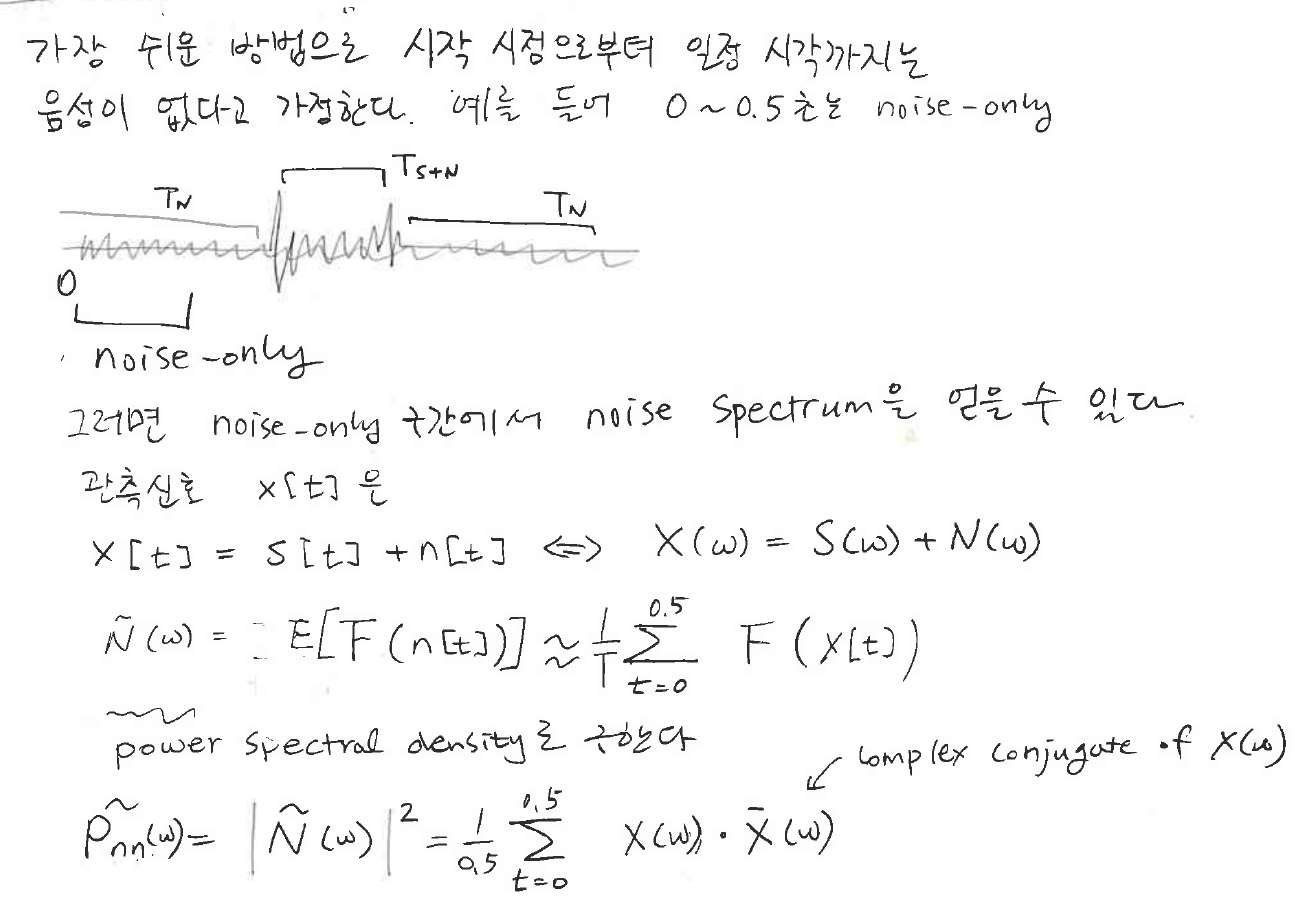 가장 쉬운 방법으로 시작 시점으로부터 일정 시각까지는
음성이 없다고 가정한다. 예를 들어 0 ~ 0.5초는 noise-only
T_{S+N}
T_N T_N
0
noise-only
그러면 noise-only 구간에서 noise spectrum을 얻을 수 있다.
관측신호 x[t] 은
x[t] = s[t] + n[t] ⟺ X(ω) = S(ω) + N(ω)
Ñ(ω) = E[F(n[t])] ≈ 1/T ∑_{t=0}^{0.5} F(x[t])
power spectral density를 구한다
complex conjugate of X(ω)
P̃_{nn}(ω) = |Ñ(ω)|² = 1/0.5 ∑_{t=0}^{0.5} X(ω) · X̄(ω)